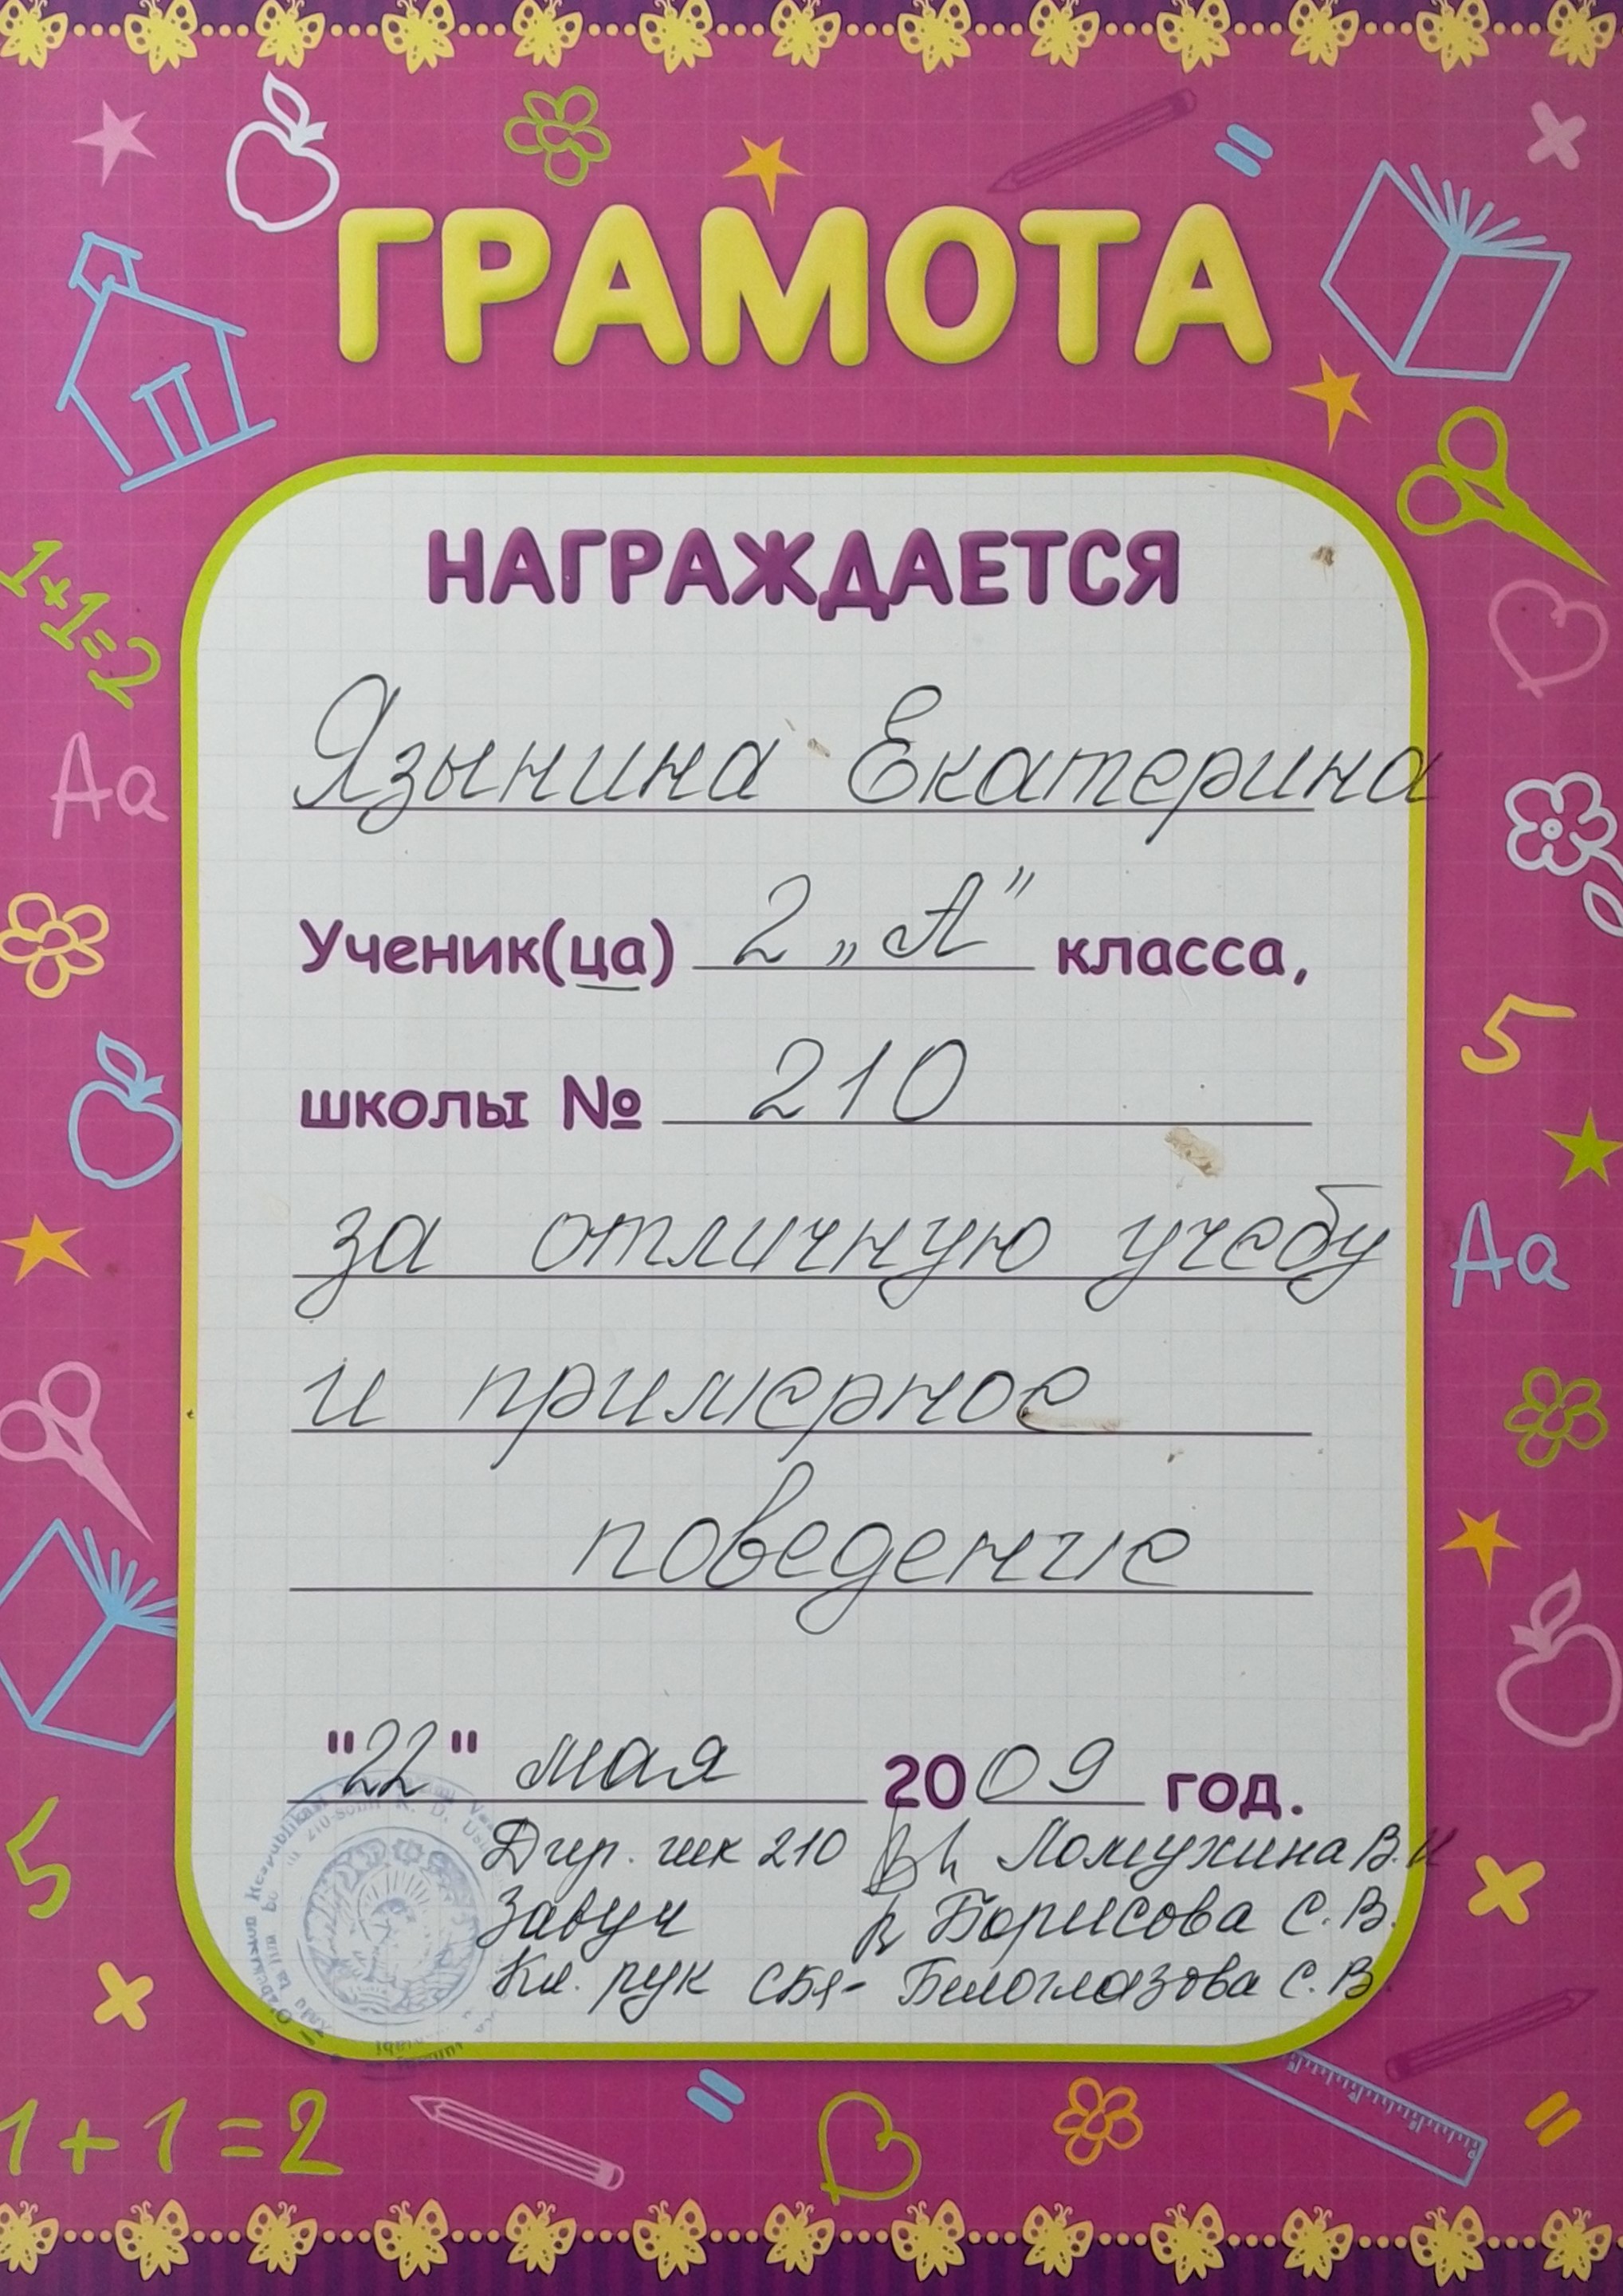 ГРАМОТА
НАГРАЖДАЕТСЯ
Языни­на Екатерина
Ученик(ца) 2 „А" класса,
школы № 210
за отличную учебу
и примерное
поведение
"22" мая 2009 год.
Дир. шк 210 Ломухина В.И
Завуч Борисова С.В.
Кл. рук Белоглазова С.В.
1+1=2
Aa
5
1+1=2
5
Aa